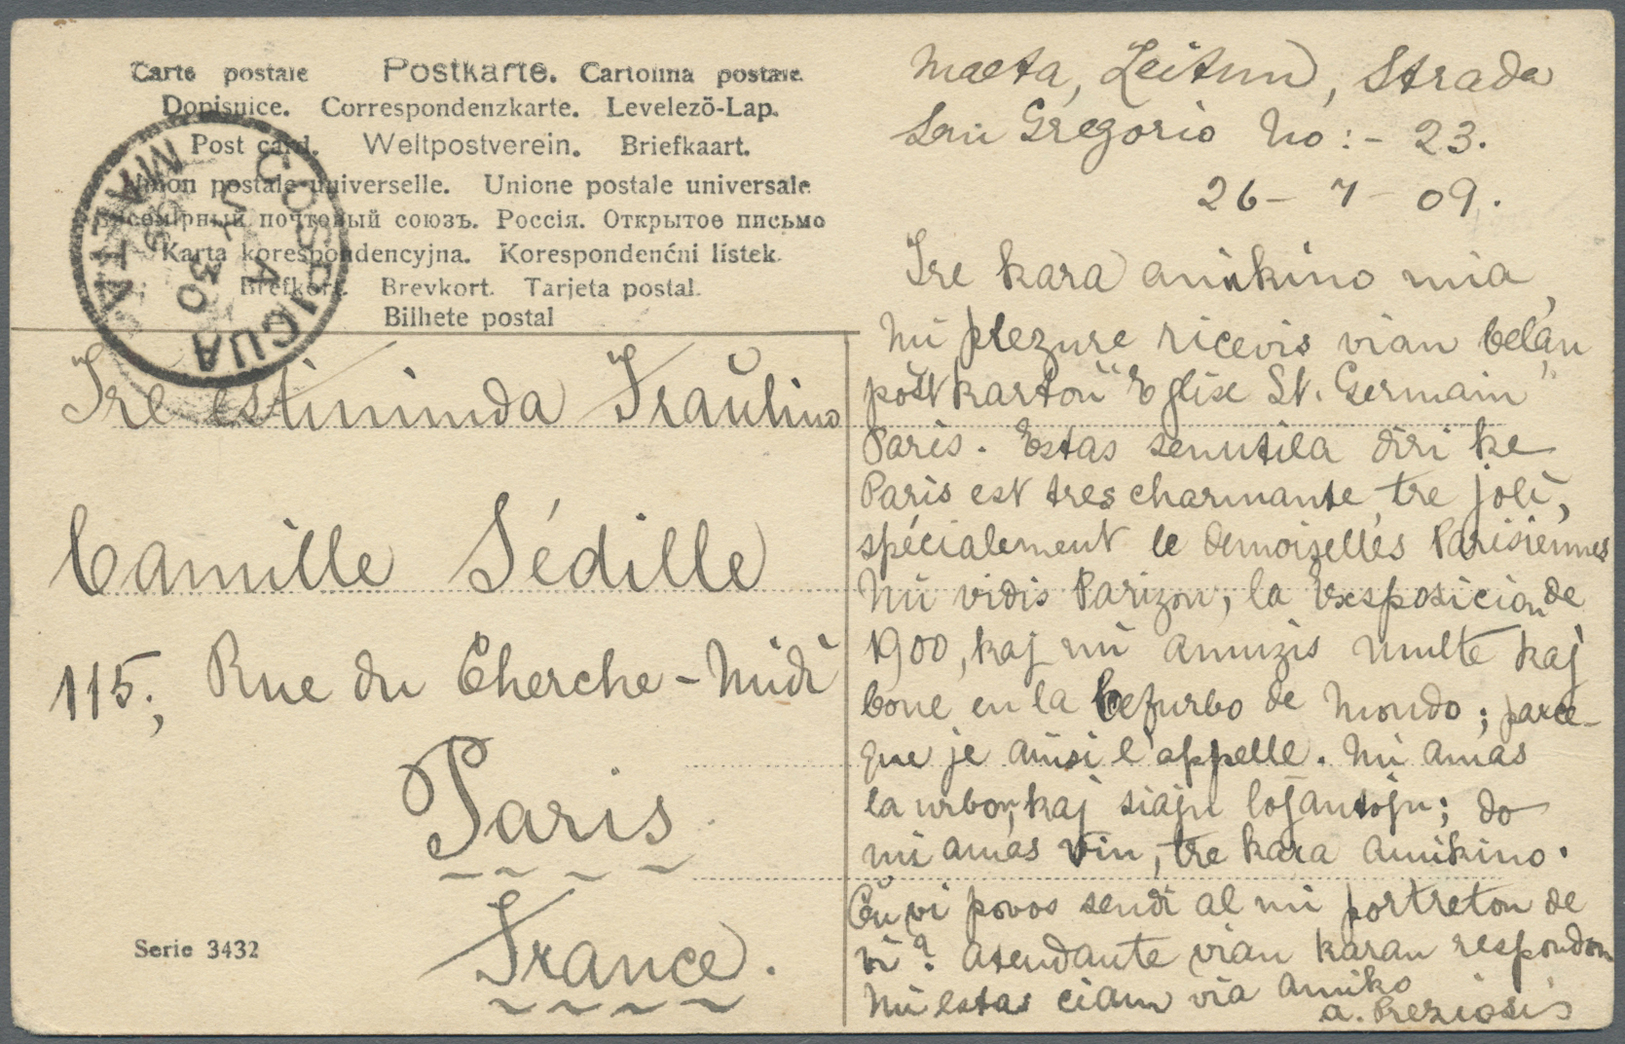 Carte postale Postkarte. Cartolina postale.
Dopisnice. Correspondenzkarte. Levelező-Lap.
Post card. Weltpostverein. Briefkaart.
Union postale universelle. Unione postale universale.
Всемірный почтовый союзъ. Россія. Открытое письмо
Karta korespondencyjna. Korespondenční lístek.
Brefkort. Brevkort. Tarjeta postal.
Bilhete postal
COSPICUA
MALTA
JL 30
Tre estiminda Fraŭlino
Camille Sédille
115, Rue du Cherche-Midi
Paris
France.
Serie 3432
Malta, Zeitun, Strada
San Gregorio No:- 23.
26 - 7 - 09.
Tre kara amikino mia,
Mi plezure ricevis vian belan
poŝtkarton "Eglise St. Germain"
Paris. Estas senutila diri ke
Paris est tres charmante, tre joli,
spécialement le demoizelles Parisiennes
Mi vidis Parizon, la Exsposicion de
1900, kaj mi amuzis multe kaj
bone en la ĉefurbo de Mondo; parce-
que je ainsi l'appelle. Mi amas
la urbon, kaj siajn loĝantojn; do
mi amas vin, tre kara amikino.
Ĉu vi povos sendi al mi portreton de
vi? Atendante vian karan respondon
Mi estas ciam via amiko
A. Preziosis